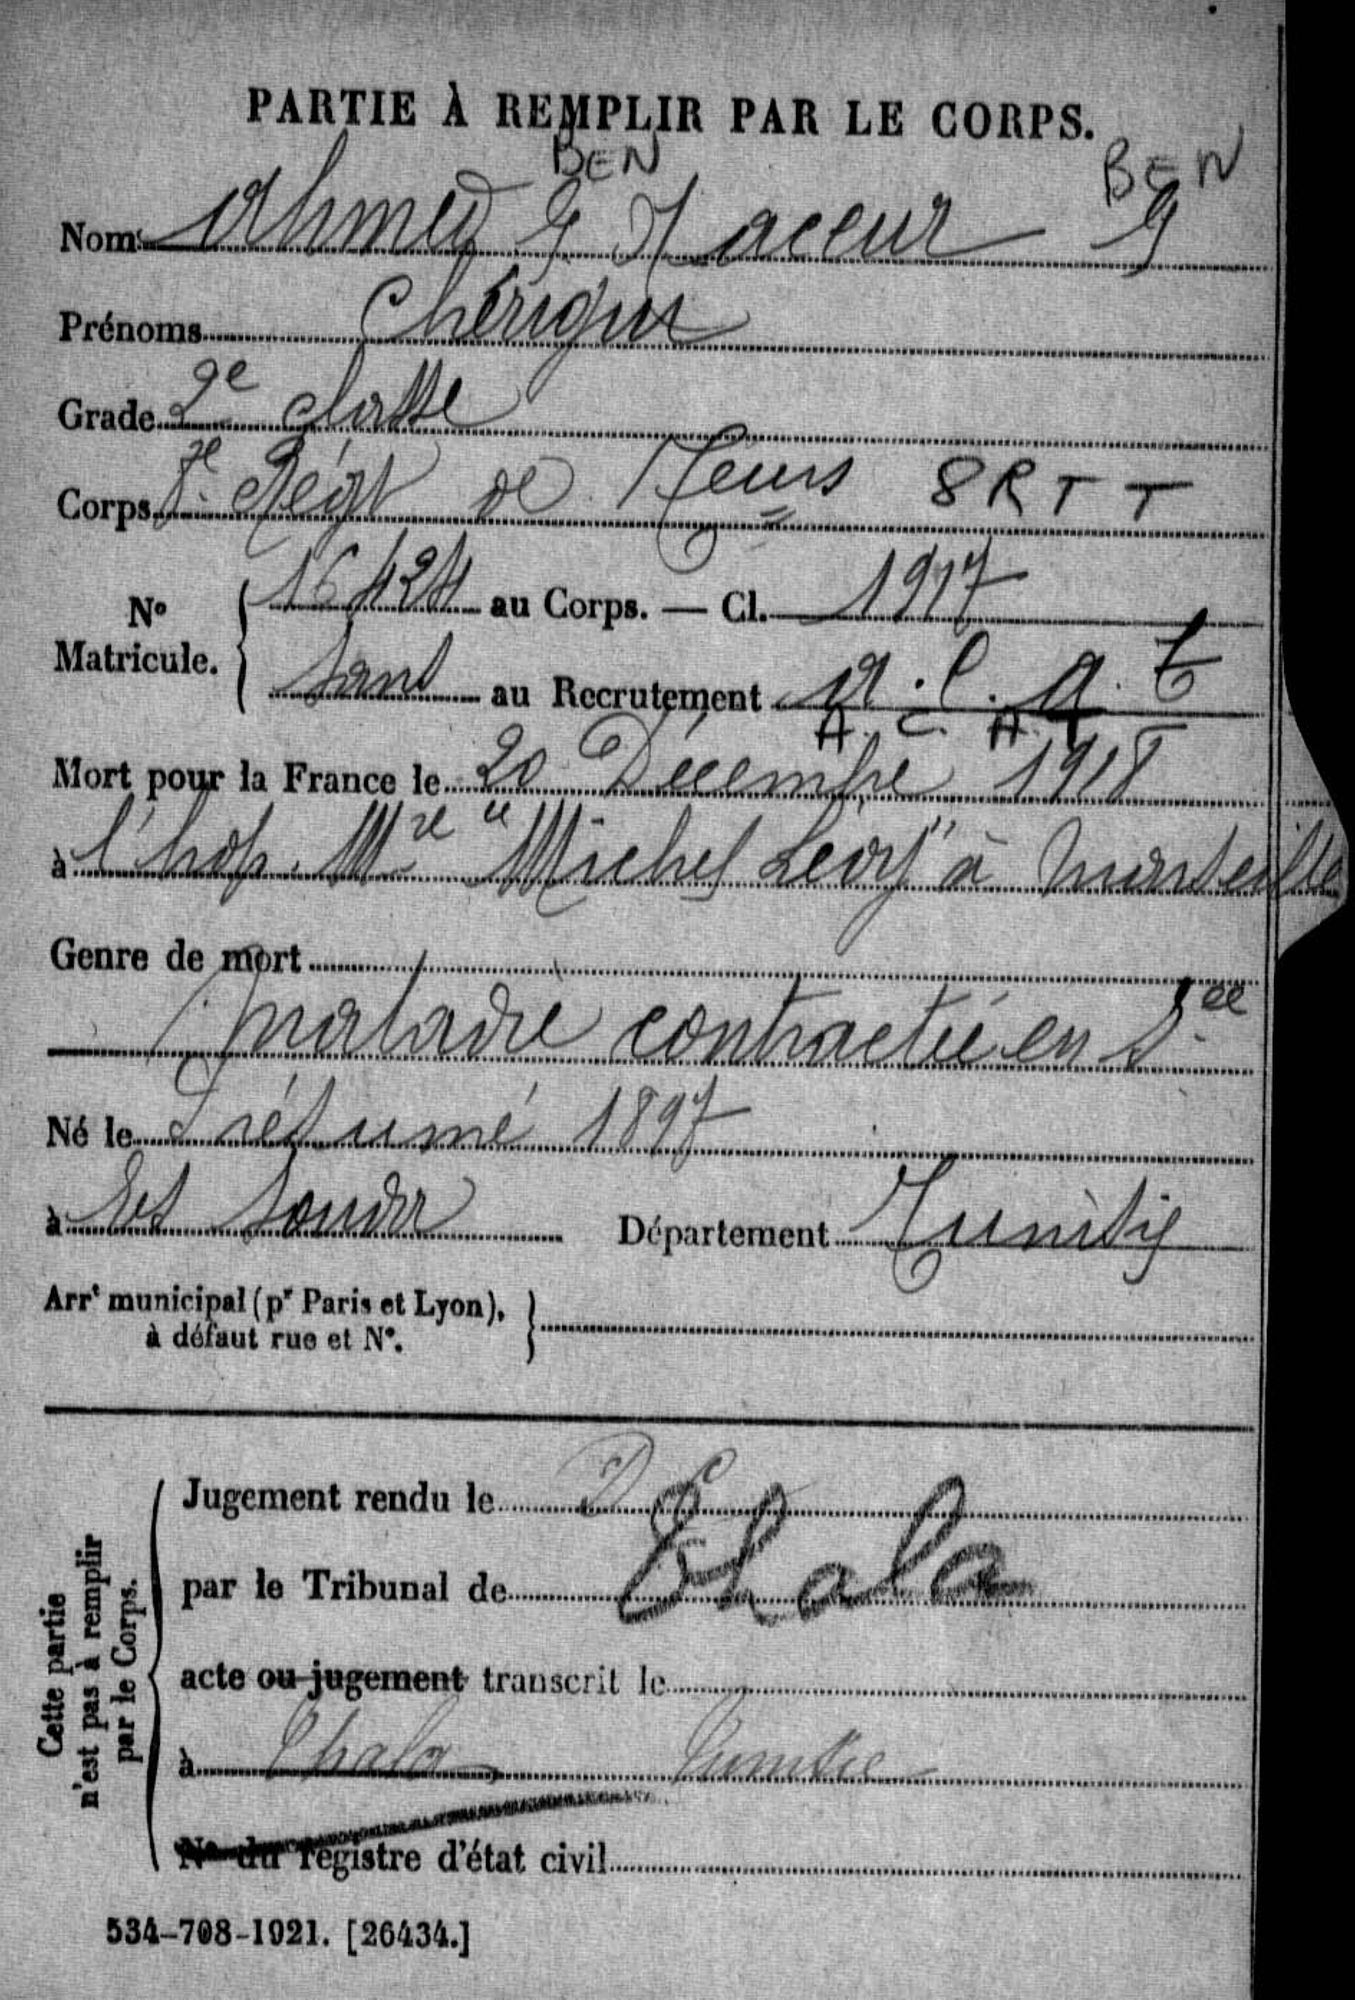 PARTIE À REMPLIR PAR LE CORPS.
BEN BEN
Nom Ahmed B Naceur B
Prénoms Chérigui
Grade 2e classe
Corps 8e Régt de Tirs 8 R T T
No Matricule. { 16424 au Corps. — Cl. 1917
sans au Recrutement A. C. A. T
A. C. A. T
Mort pour la France le 20 Décembre 1918
à l'hôp. Mre "Michel Lévy" à Marseille
Genre de mort
Maladie contractée en Sce
Né le Présumé 1897
à Département Tunisie
Arrt municipal (pr Paris et Lyon), à défaut rue et No. }
Cette partie n'est pas à remplir par le Corps.
Jugement rendu le D
par le Tribunal de Thala
acte ou jugement transcrit le
à Thala Tunisie
No du registre d'état civil
534-708-1921. [26434.]